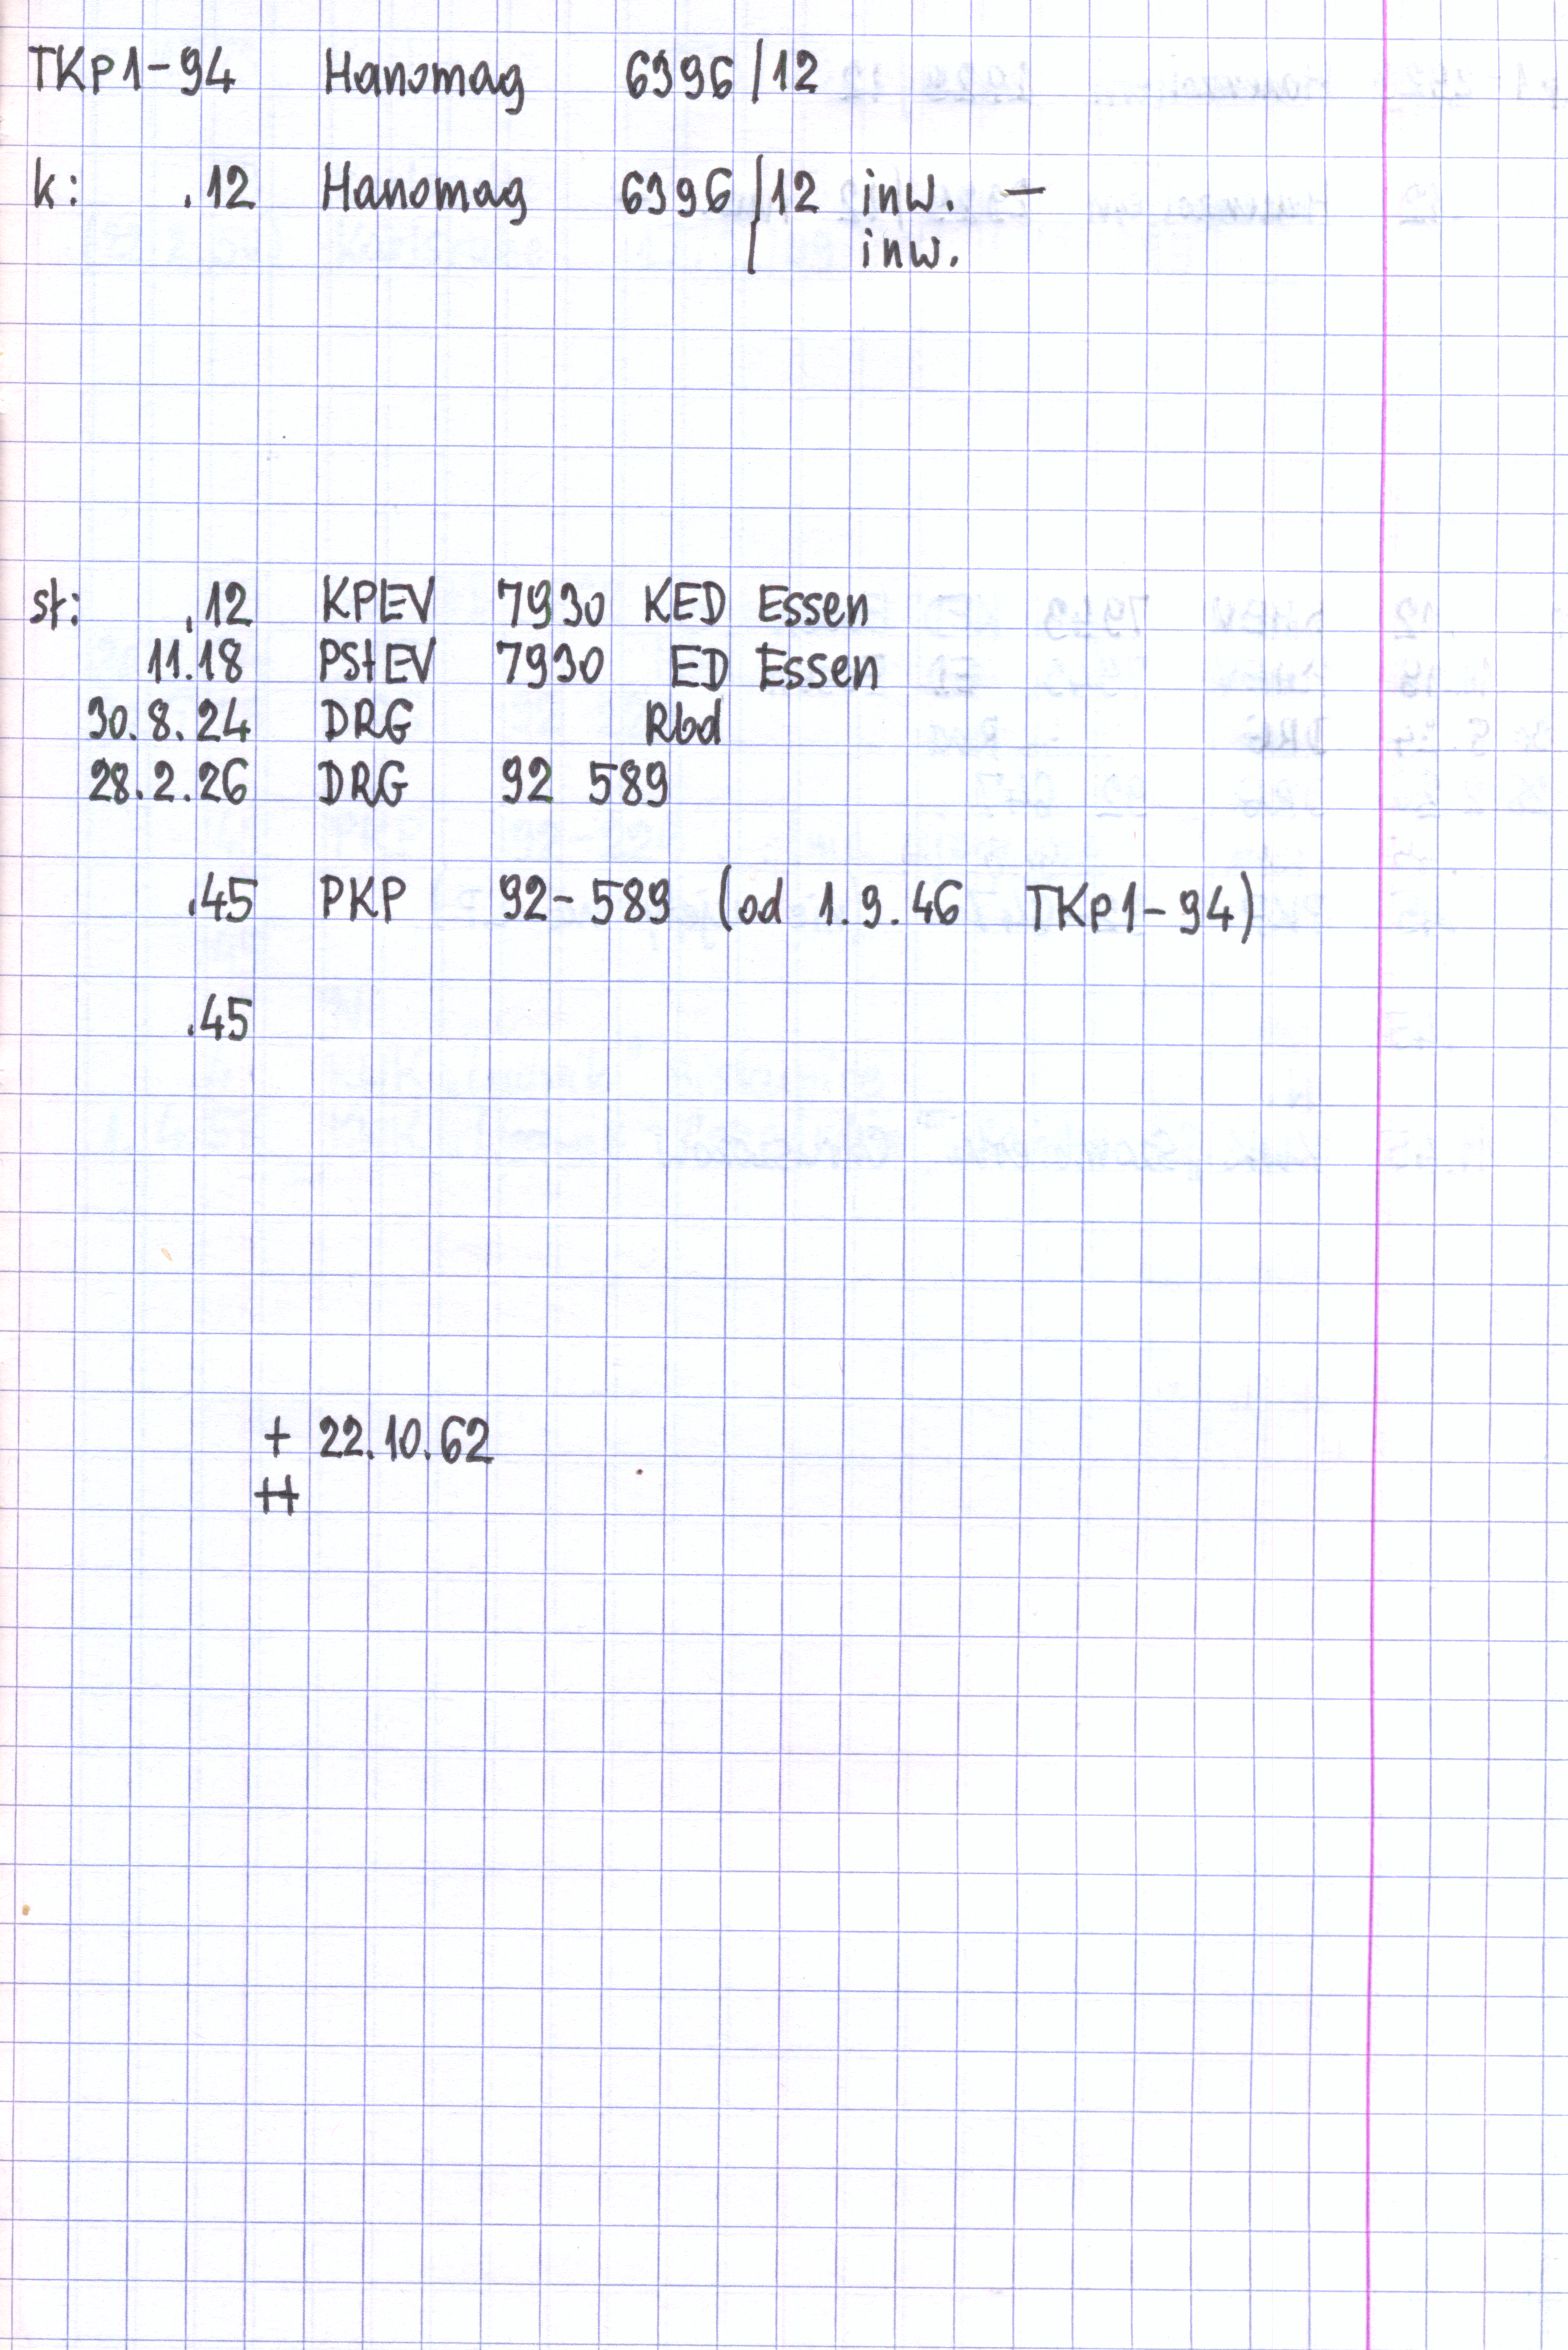 TKp1-94 Hanomag 6396/12
k: .12 Hanomag 6396/12 inw. -
/ inw.
st: .12 KPEV 7930 KED Essen
11.18 PStEV 7930 ED Essen
30.8.24 DRG Rbd
28.2.26 DRG 92 589
.45 PKP 92-589 (od 1.9.46 TKp1-94)
.45
+ 22.10.62
++